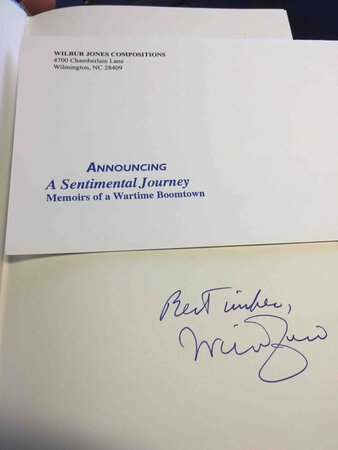 WILBUR JONES COMPOSITIONS
4700 Chamberlain Lane
Wilmington, NC 28409
ANNOUNCING
A Sentimental Journey
Memoirs of a Wartime Boomtown
Best wishes,